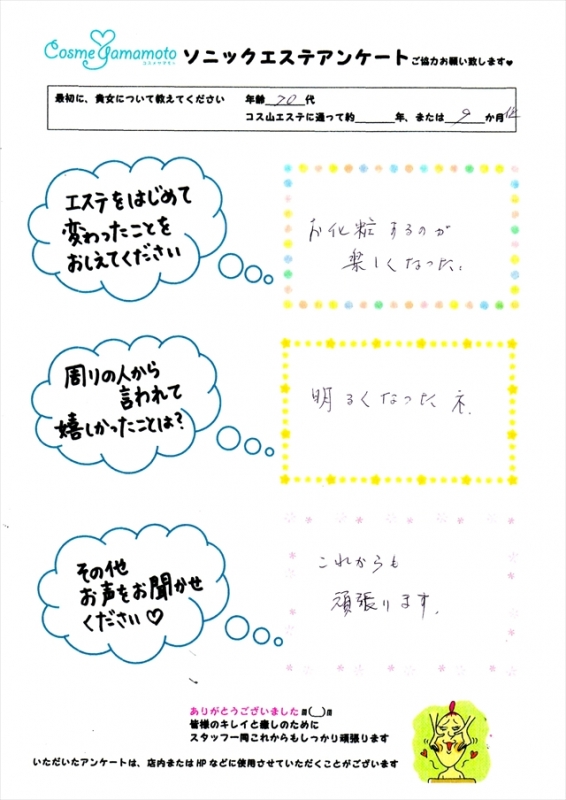 Cosme Yamamoto
コスメヤマモト
ソニックエステアンケートご協力お願い致します♥
最初に、貴女について教えてください 年齢 70 代
コス山エステに通って約 年、または 9 か月位
エステをはじめて
変わったことを
おしえてください
お化粧するのが
楽しくなった。
周りの人から
言われて
嬉しかったことは?
明るくなったネ.
その他
お声をお聞かせ
ください♡
これからも
頑張ります.
ありがとうございました
皆様のキレイと癒しのために
スタッフ一同これからもしっかり頑張ります
いただいたアンケートは、店内またはHPなどに使用させていただくことがございます